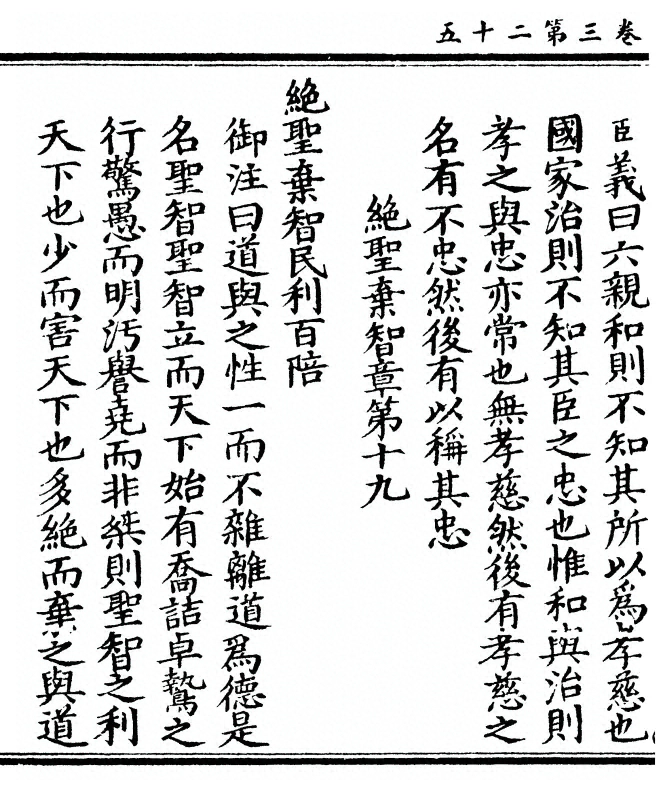 卷三第二十五
臣義曰六親和則不知其所以爲孝慈也
國家治則不知其臣之忠也惟和與治則
孝之與忠亦常也無孝慈然後有孝慈之
名有不忠然後有以稱其忠
絕聖棄智章第十九
絕聖棄智民利百陪
御注曰道與之性一而不雜離道爲德是
名聖智聖智立而天下始有喬詰卓鷙之
行驚愚而明汚譽堯而非桀則聖智之利
天下也少而害天下也多絕而棄之與道